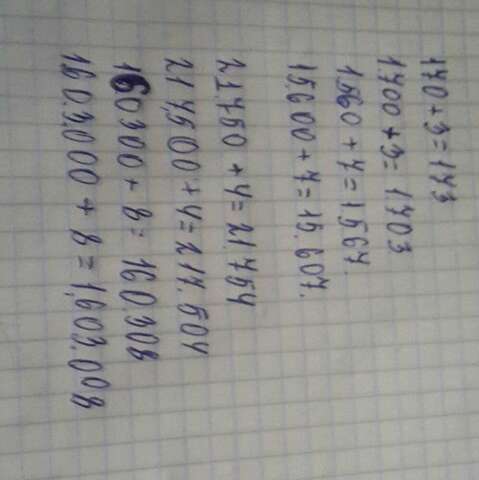 170+3=173
1700+3=1.703
1.560+7=1.567.
15.600+7=15.607.
21.750+4=21.754
217.500+4=217.504
160300+8=160.308
1.603.000+8=1.603.008